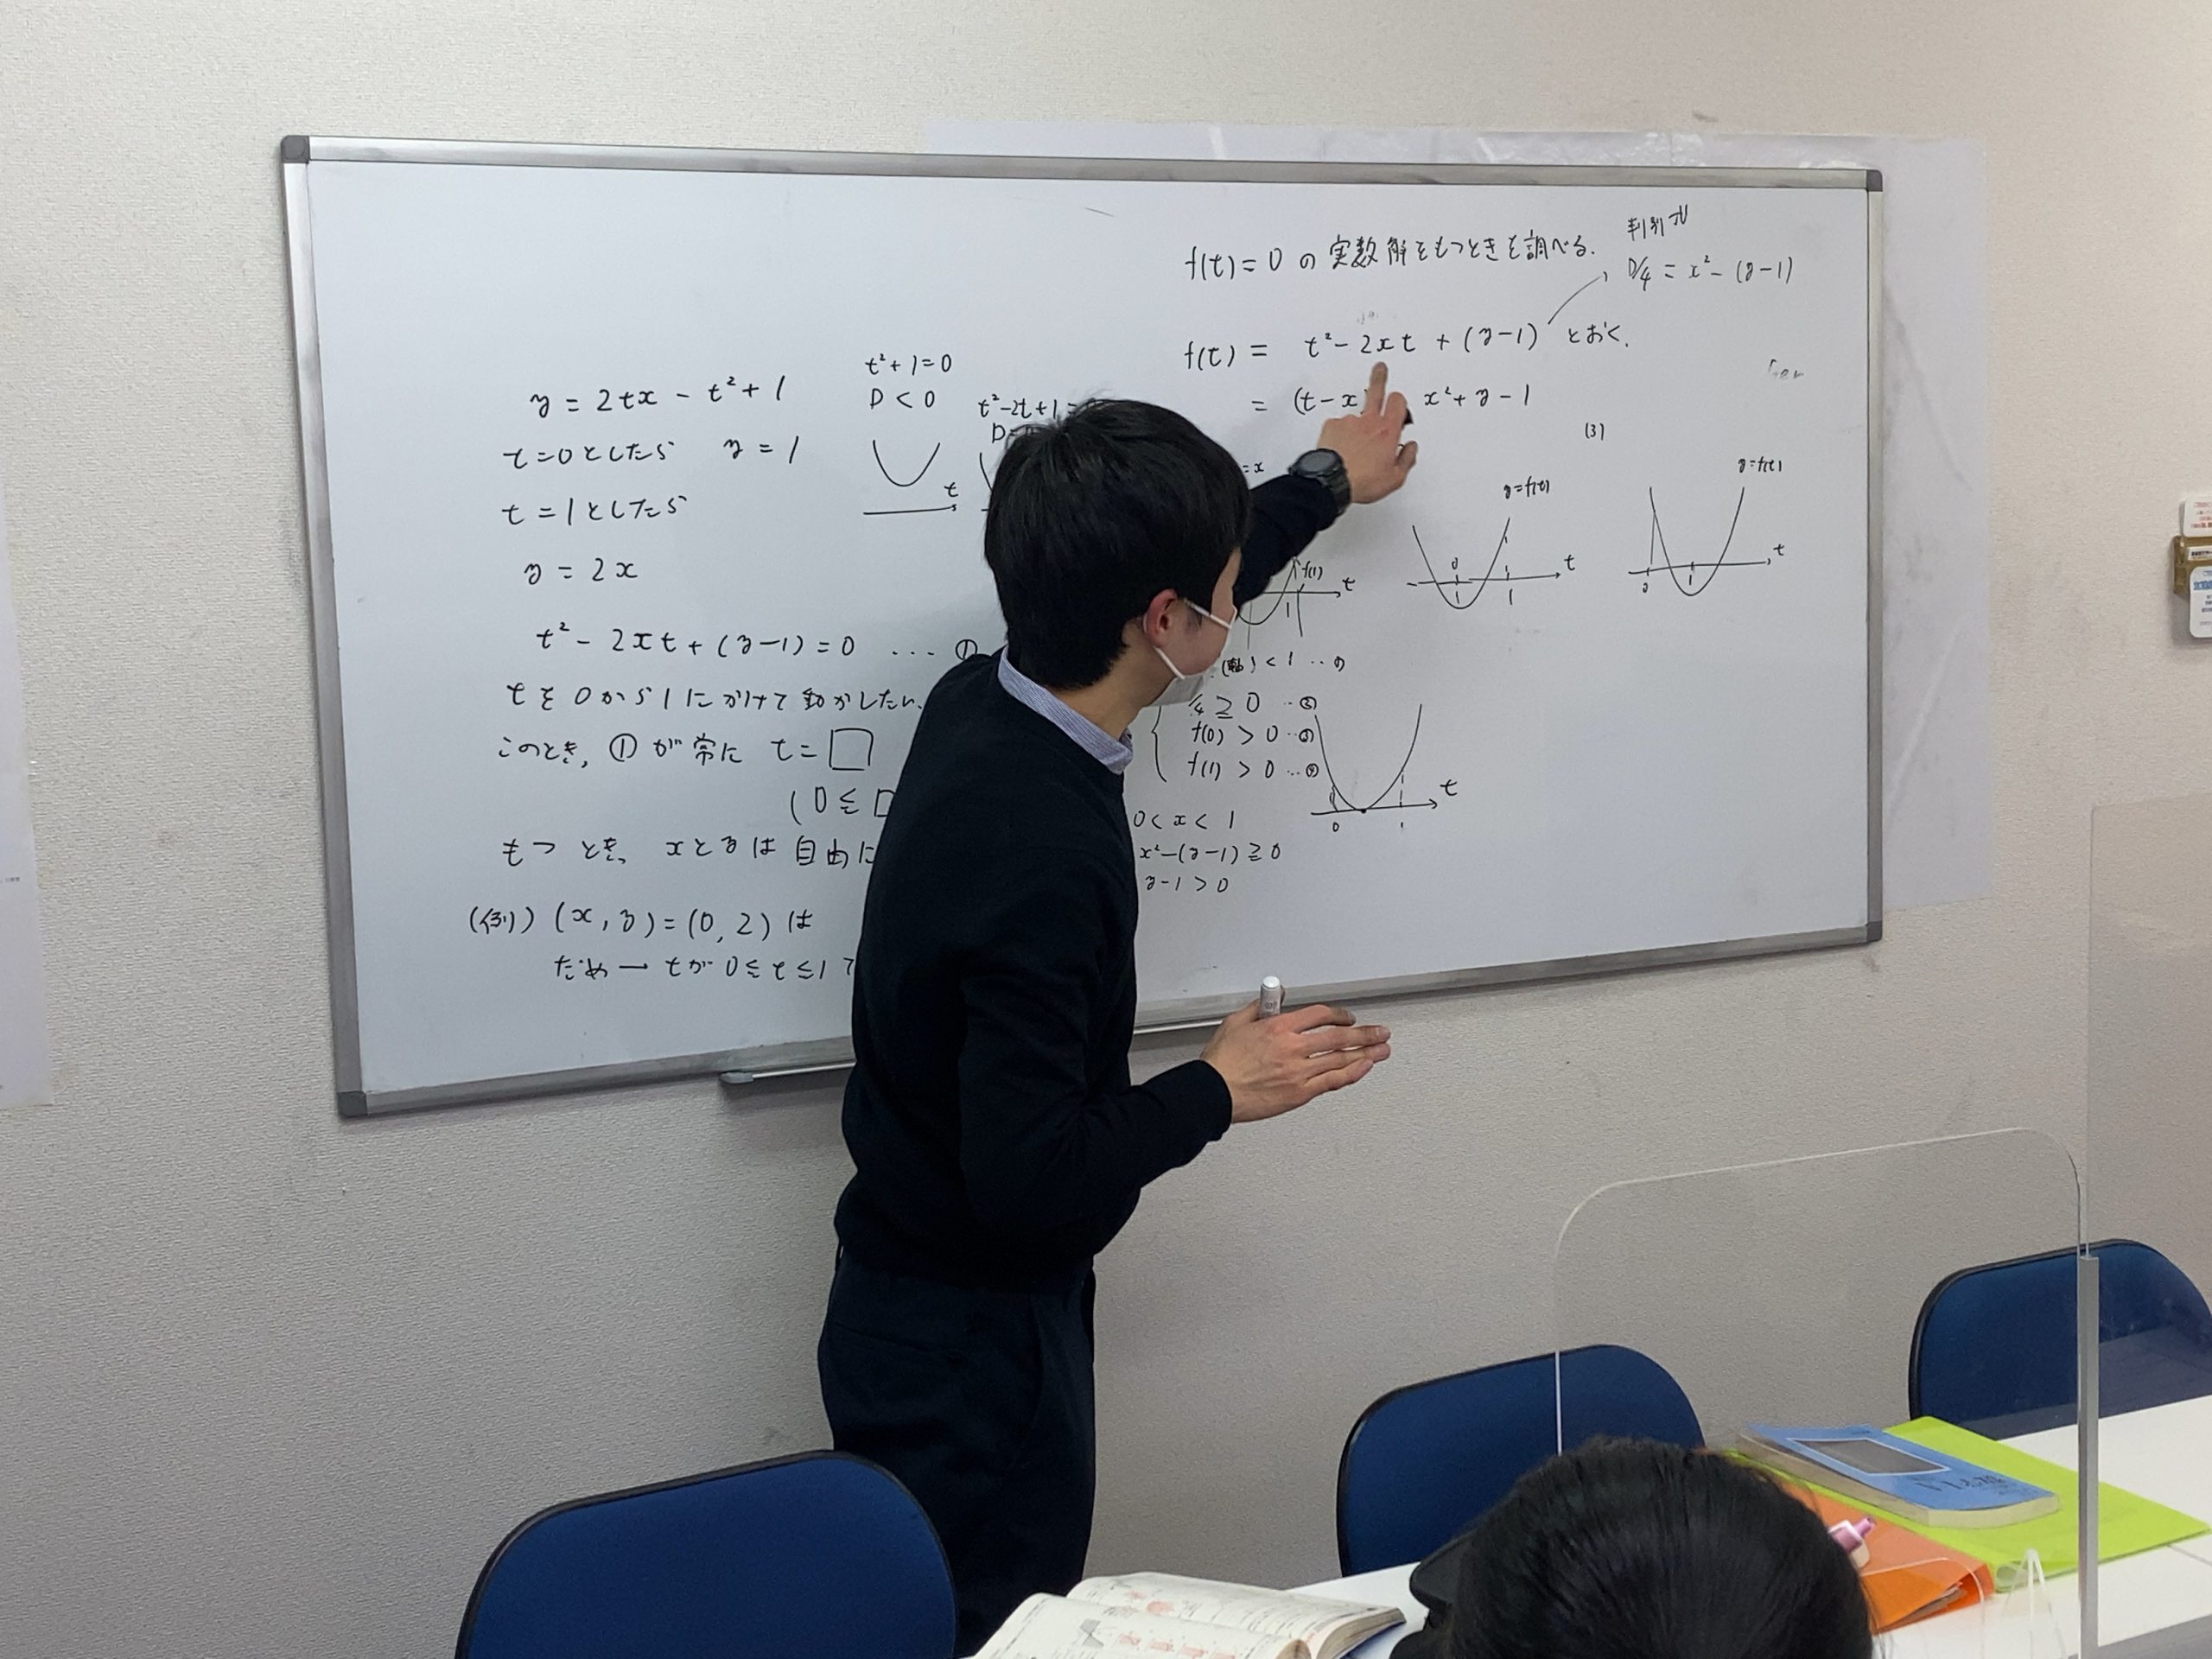 y = 2tx - t² + 1
t=0としたら y = 1
t = 1としたら
y = 2x
t² - 2xt + (y-1) = 0 ... ①
tを0から1にかけて動かしたい.
このとき, ①が常に t = □
(0 ≦
もつ とき, xとyは自由に
(例) (x, y) = (0, 2) は
だめ → tが 0 ≦ t ≦ 1
t² + 1 = 0
D < 0
t
t²-2t+1 =
f(t) = 0 の 実数解をもつときを調べる.
判別式
D/4 = x² - (y-1)
f(t) = t² - 2xt + (y-1) とおく.
= (t-x) x² + y - 1
= x
f(1)
t
y=f(t)
0
1
t
(3)
y=f(t)
0
1
t
(軸) < 1
4 ≧ 0
f(0) > 0
f(1) > 0
0 < x < 1
x²-(y-1) ≧ 0
y-1 > 0
0
1
t